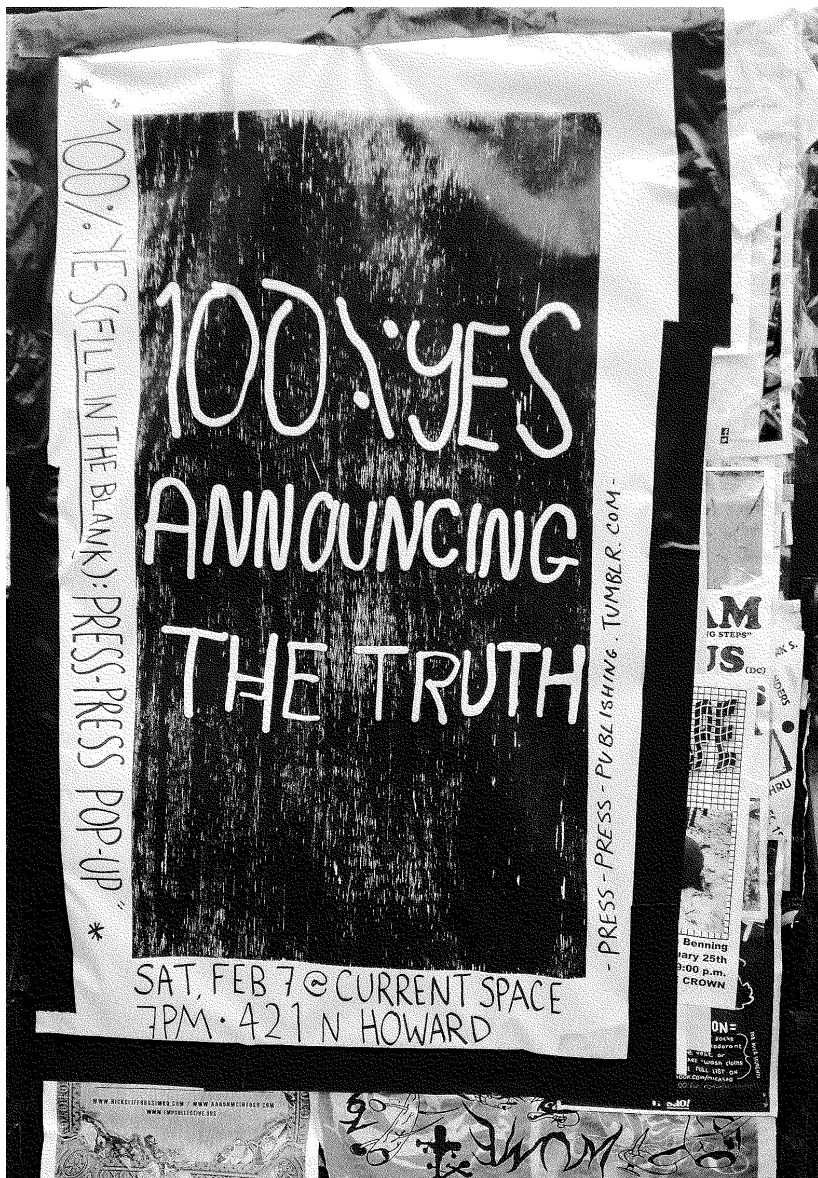 * "100% YES (FILL IN THE BLANK): PRESS-PRESS POP-UP" *
100% YES
ANNOUNCING
THE TRUTH
- PRESS - PRESS - PUBLISHING . TUMBLR. COM -
SAT, FEB 7 @ CURRENT SPACE
7PM · 421 N HOWARD
AM
NG STEPS"
US (DC)
HRU
Benning
uary 25th
9:00 p.m.
CROWN
ON=
socks
FULL LIST ON